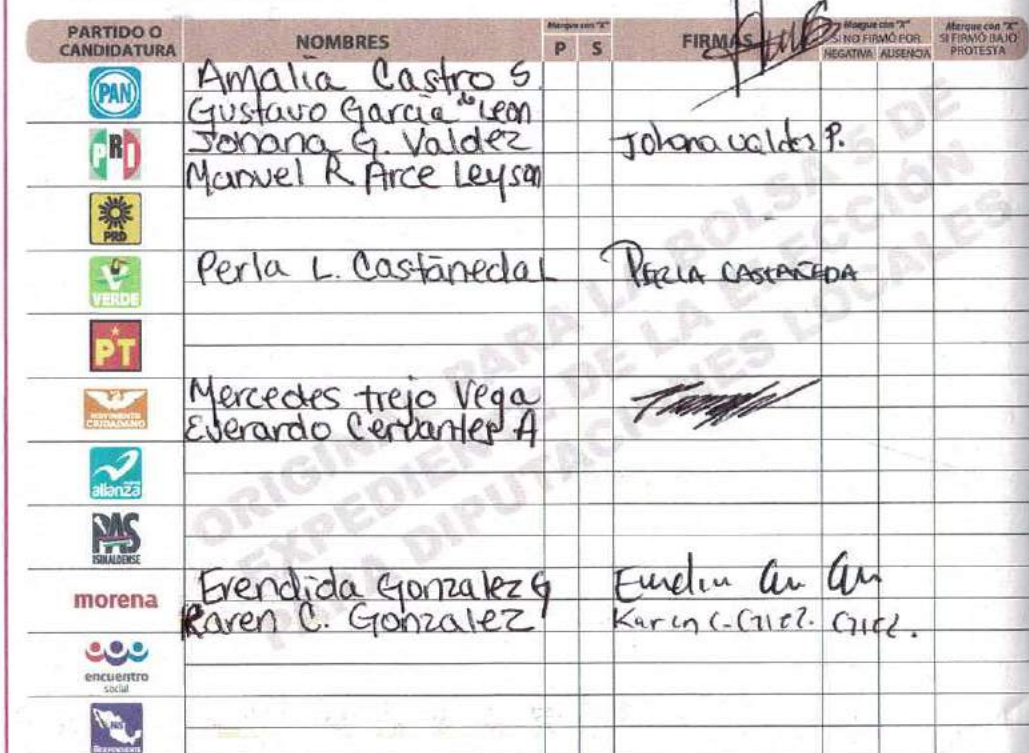 PARTIDO O CANDIDATURA NOMBRES Marque con "X" P S FIRMAS Marque con "X" SI NO FIRMÓ POR NEGATIVA AUSENCIA Marque con "X" SI FIRMÓ BAJO PROTESTA
PAN Amalia Castro S
Gustavo Garcia de Leon
PRI Johana G. Valdez Johana Valdez P.
Manuel R Arce Leyson
PRD
VERDE Perla L. Castañeda L PERLA CASTAÑEDA
PT
MOVIMIENTO CIUDADANO Mercedes trejo Vega
Everardo Cervantes A
alianza
PAS SINALOENSE
morena Erendida Gonzalez G
Karen C. Gonzalez Karen C. Glez. Glez.
encuentro social
INDEPENDIENTE
ORIGINAL PARA LA BOLSA 5 DE
EXPEDIENTE DE LA ELECCIÓN
PARA DIPUTACIONES LOCALES